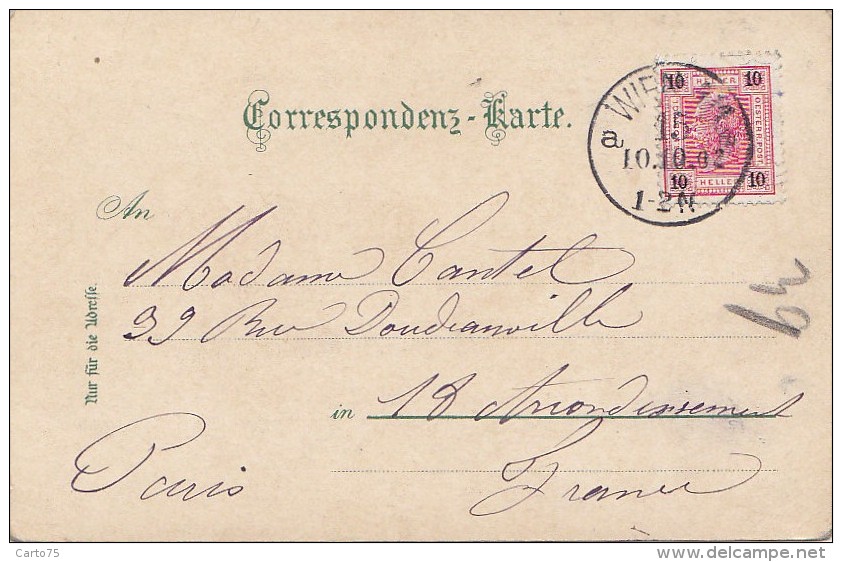 Correspondenz-Karte.
10 HELLER 10
OESTERR.POST
10 HELLER 10
a WIEN
15
10.10.02
1-2N
An
Madame Cantel
39 Rue Doudeauville
in 18 Arrondissement
Paris France
Nur für die Adresse.
Carto75
www.delcampe.net